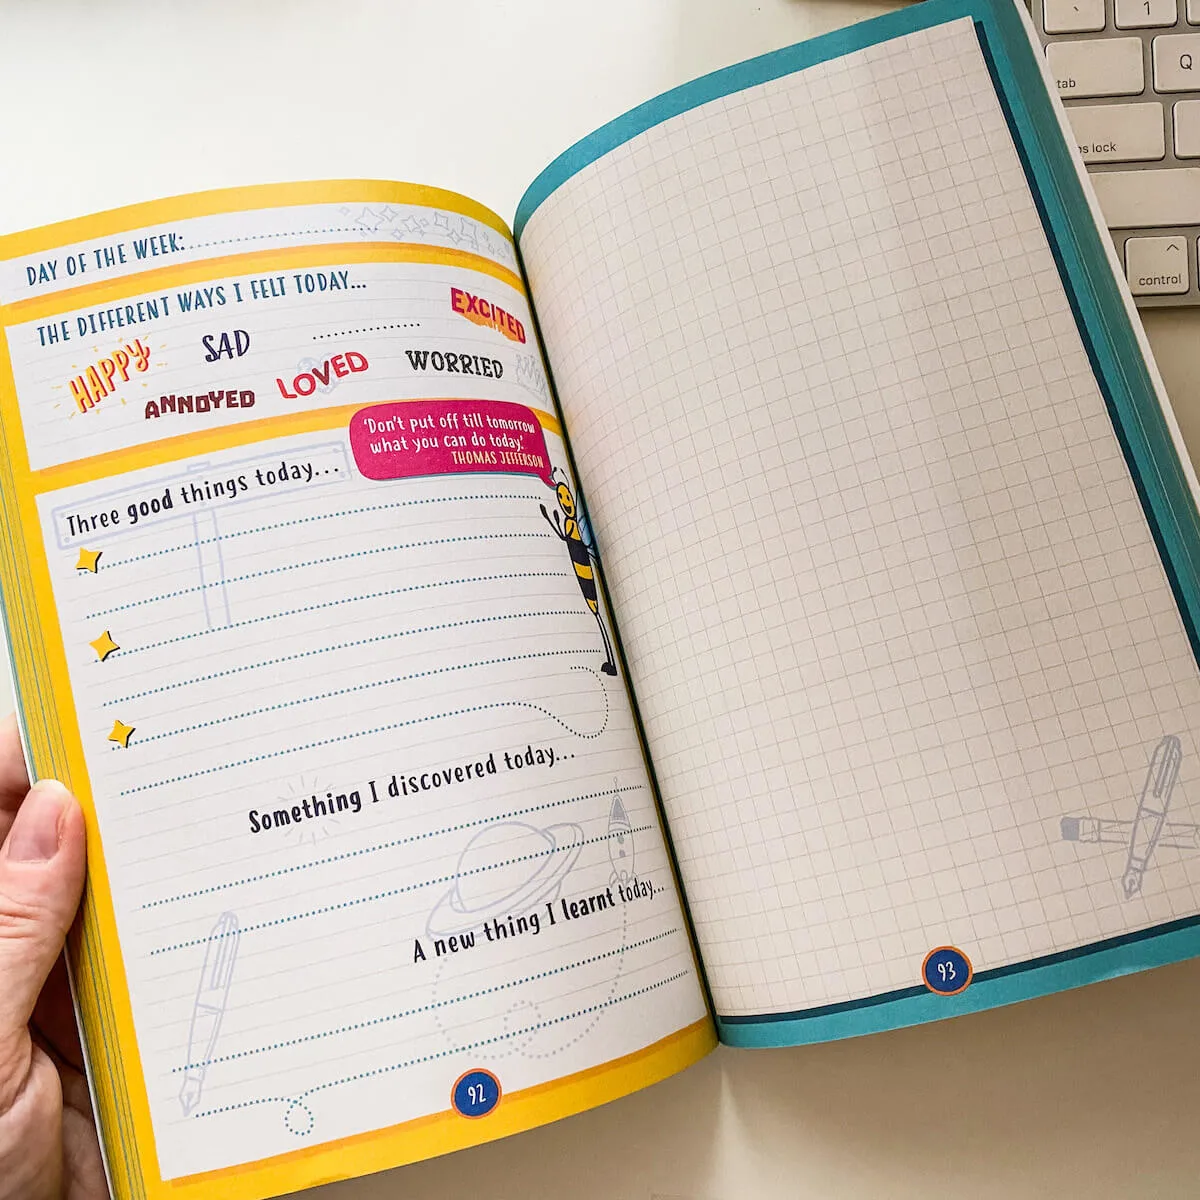 DAY OF THE WEEK:
THE DIFFERENT WAYS I FELT TODAY...
HAPPY
SAD
EXCITED
ANNOYED
LOVED
WORRIED
'Don't put off till tomorrow
what you can do today.'
THOMAS JEFFERSON
Three good things today...
Something I discovered today...
A new thing I learnt today...
92
93
1
tab
Q
ps lock
control